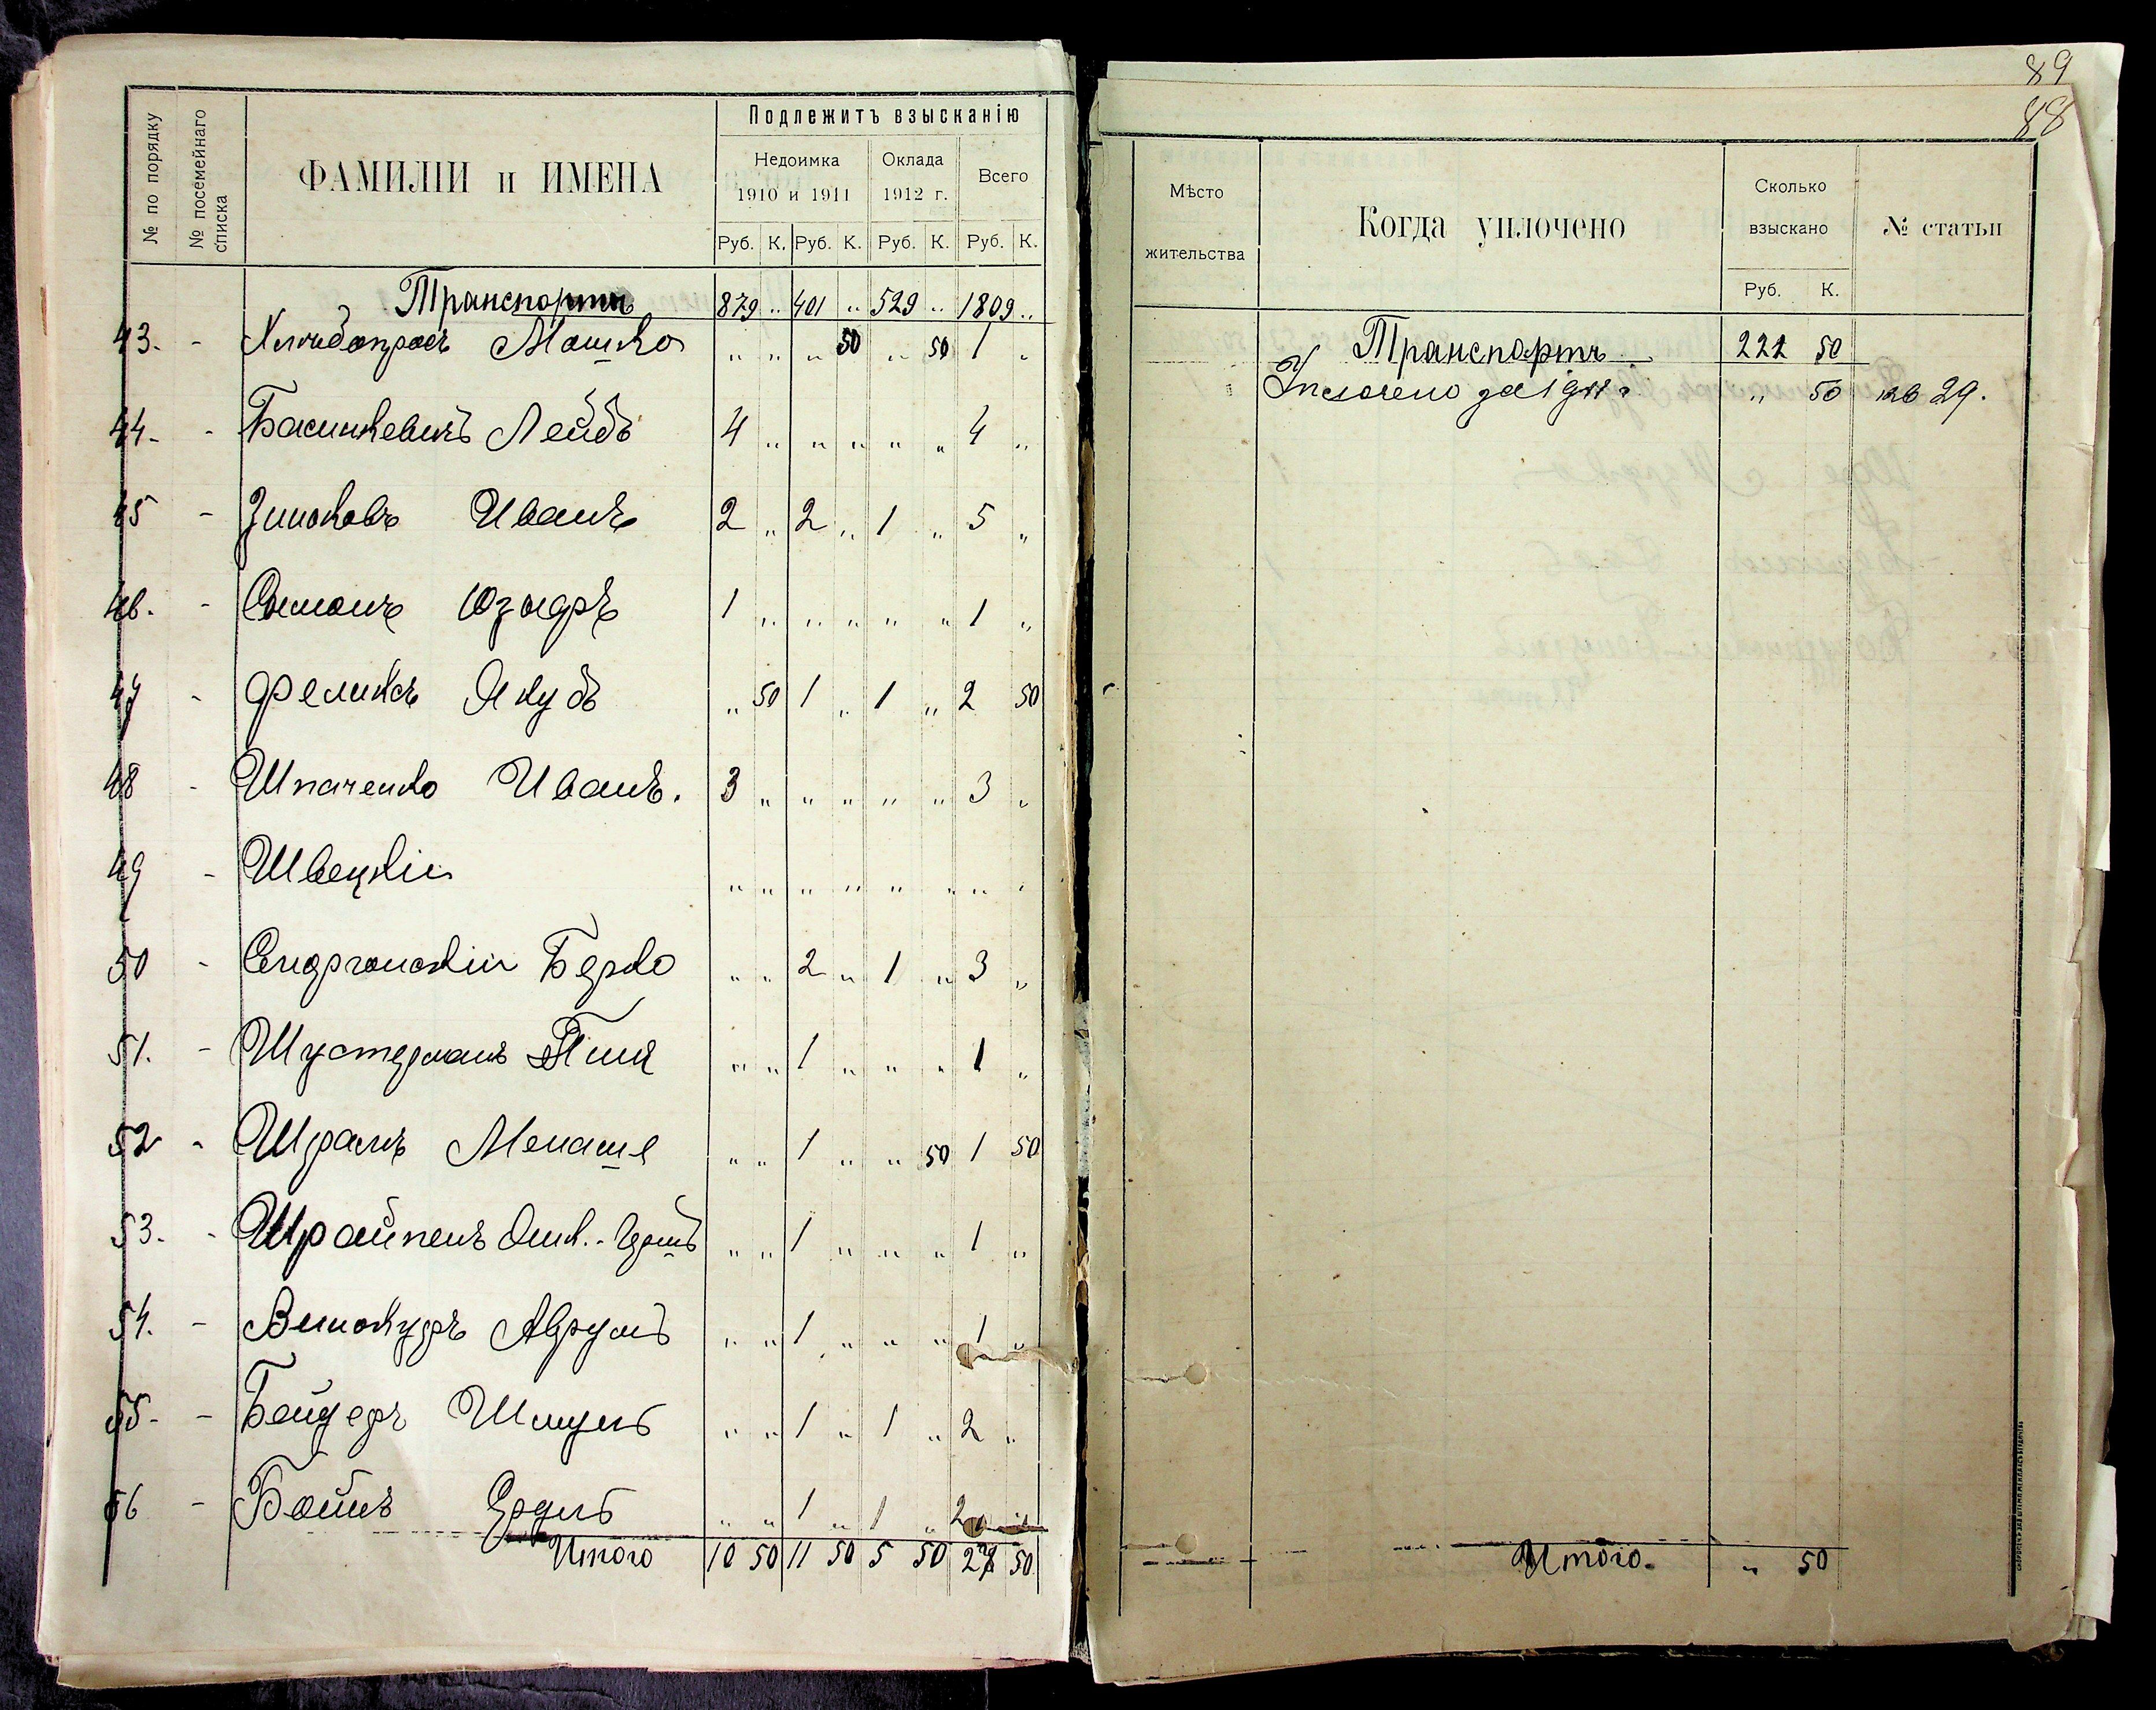 89
88
№ по порядку
№ посемейнаго списка
ФАМИЛІИ и ИМЕНА
Подлежитъ взысканію
Недоимка
1910 и 1911
Оклада
1912 г.
Всего
Руб. К. Руб. К. Руб. К. Руб. К.
Транспортъ 879 „ 401 „ 529 „ 1809 „
43. - Мошко „ „ „ 50 „ 50 1 „
44. - Лейбъ 4 „ „ „ „ „ 4 „
45 - Зинковъ Иванъ 2 „ 2 „ 1 „ 5 „
46. - 1 „ „ „ „ „ 1 „
47 - Феликсъ Якубъ „ 50 1 „ 1 „ 2 50
48 - Шпаченко Иванъ. 3 „ „ „ „ „ 3 „
49 - Швецкій „ „ „ „ „ „ „ „
50 - Берко „ „ 2 „ 1 „ 3 „
51. - Шустерманъ „ „ 1 „ „ „ 1 „
52 - Шрамъ Менаше „ „ 1 „ „ 50 1 50
53. - „ „ 1 „ „ „ 1 „
54. - Винокуръ Аврумъ „ „ 1 „ „ „ 1 „
55. - Шмуль „ „ 1 „ 1 „ 2 „
56 - „ „ 1 „ 1 „ 2 „
Итого 10 50 11 50 5 50 27 50
Мѣсто
жительства
Когда уплочено
Сколько
взыскано
Руб. К.
№ статьи
Транспортъ 222 50
Уплочено „ 50 29.
Итого. „ 50